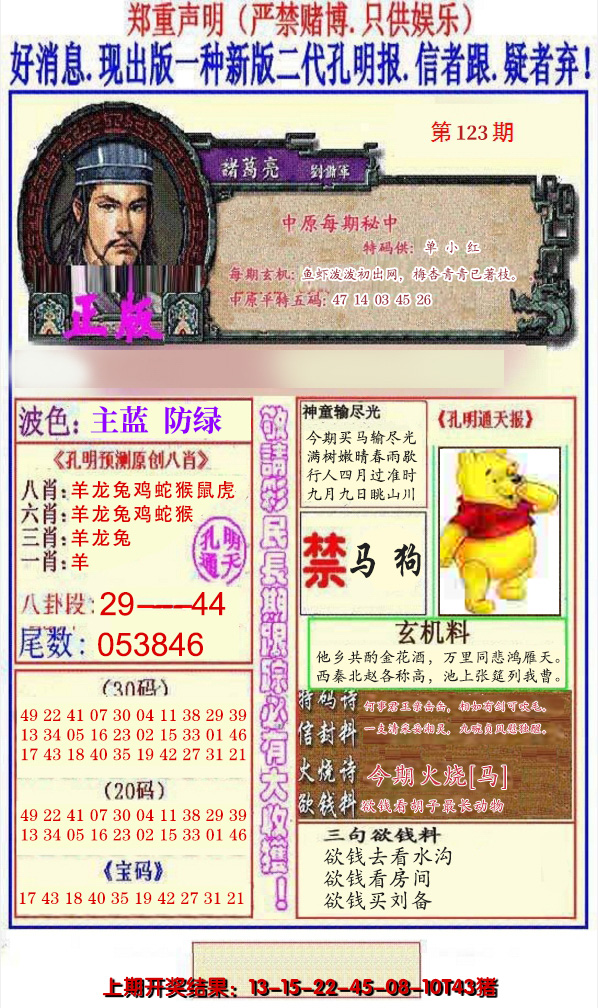 郑重声明（严禁赌博.只供娱乐）
好消息.现出版一种新版二代孔明报.信者跟.疑者弃！
第123期
諸葛亮 劉備軍
中原每期秘中
特码供：单小红
每期玄机：鱼虾泼泼初出网，梅杏青青已著枝。
中原平特五码：47 14 03 45 26
正版
波色：主蓝 防绿
《孔明预测原创八肖》
八肖：羊龙兔鸡蛇猴鼠虎
六肖：羊龙兔鸡蛇猴
三肖：羊龙兔
一肖：羊
孔明
通天
八卦段：29——44
尾数：053846
（30码）
49 22 41 07 30 04 11 38 29 39
13 34 05 16 23 02 15 33 01 46
17 43 18 40 35 19 42 27 31 21
（20码）
49 22 41 07 30 04 11 38 29 39
13 34 05 16 23 02 15 33 01 46
《宝码》
17 43 18 40 35 19 42 27 31 21
敬請彩民長期跟踪必有大收獲！
神童输尽光
今期买马输尽光
满树嫩晴春雨歇
行人四月过淮时
九月九日眺山川
《孔明通天报》
禁 马 狗
玄机料
他乡共酌金花酒，万里同悲鸿雁天。
西秦北赵各称高，池上张筵列我曹。
特码诗 何事君王亲击缶，相如有剑可吹毛。
信封料
火烧诗 今期火烧[马]
欲钱料 欲钱看胡子最长动物
三句欲钱料
欲钱去看水沟
欲钱看房间
欲钱买刘备
上期开奖结果：13-15-22-45-08-10T43猪